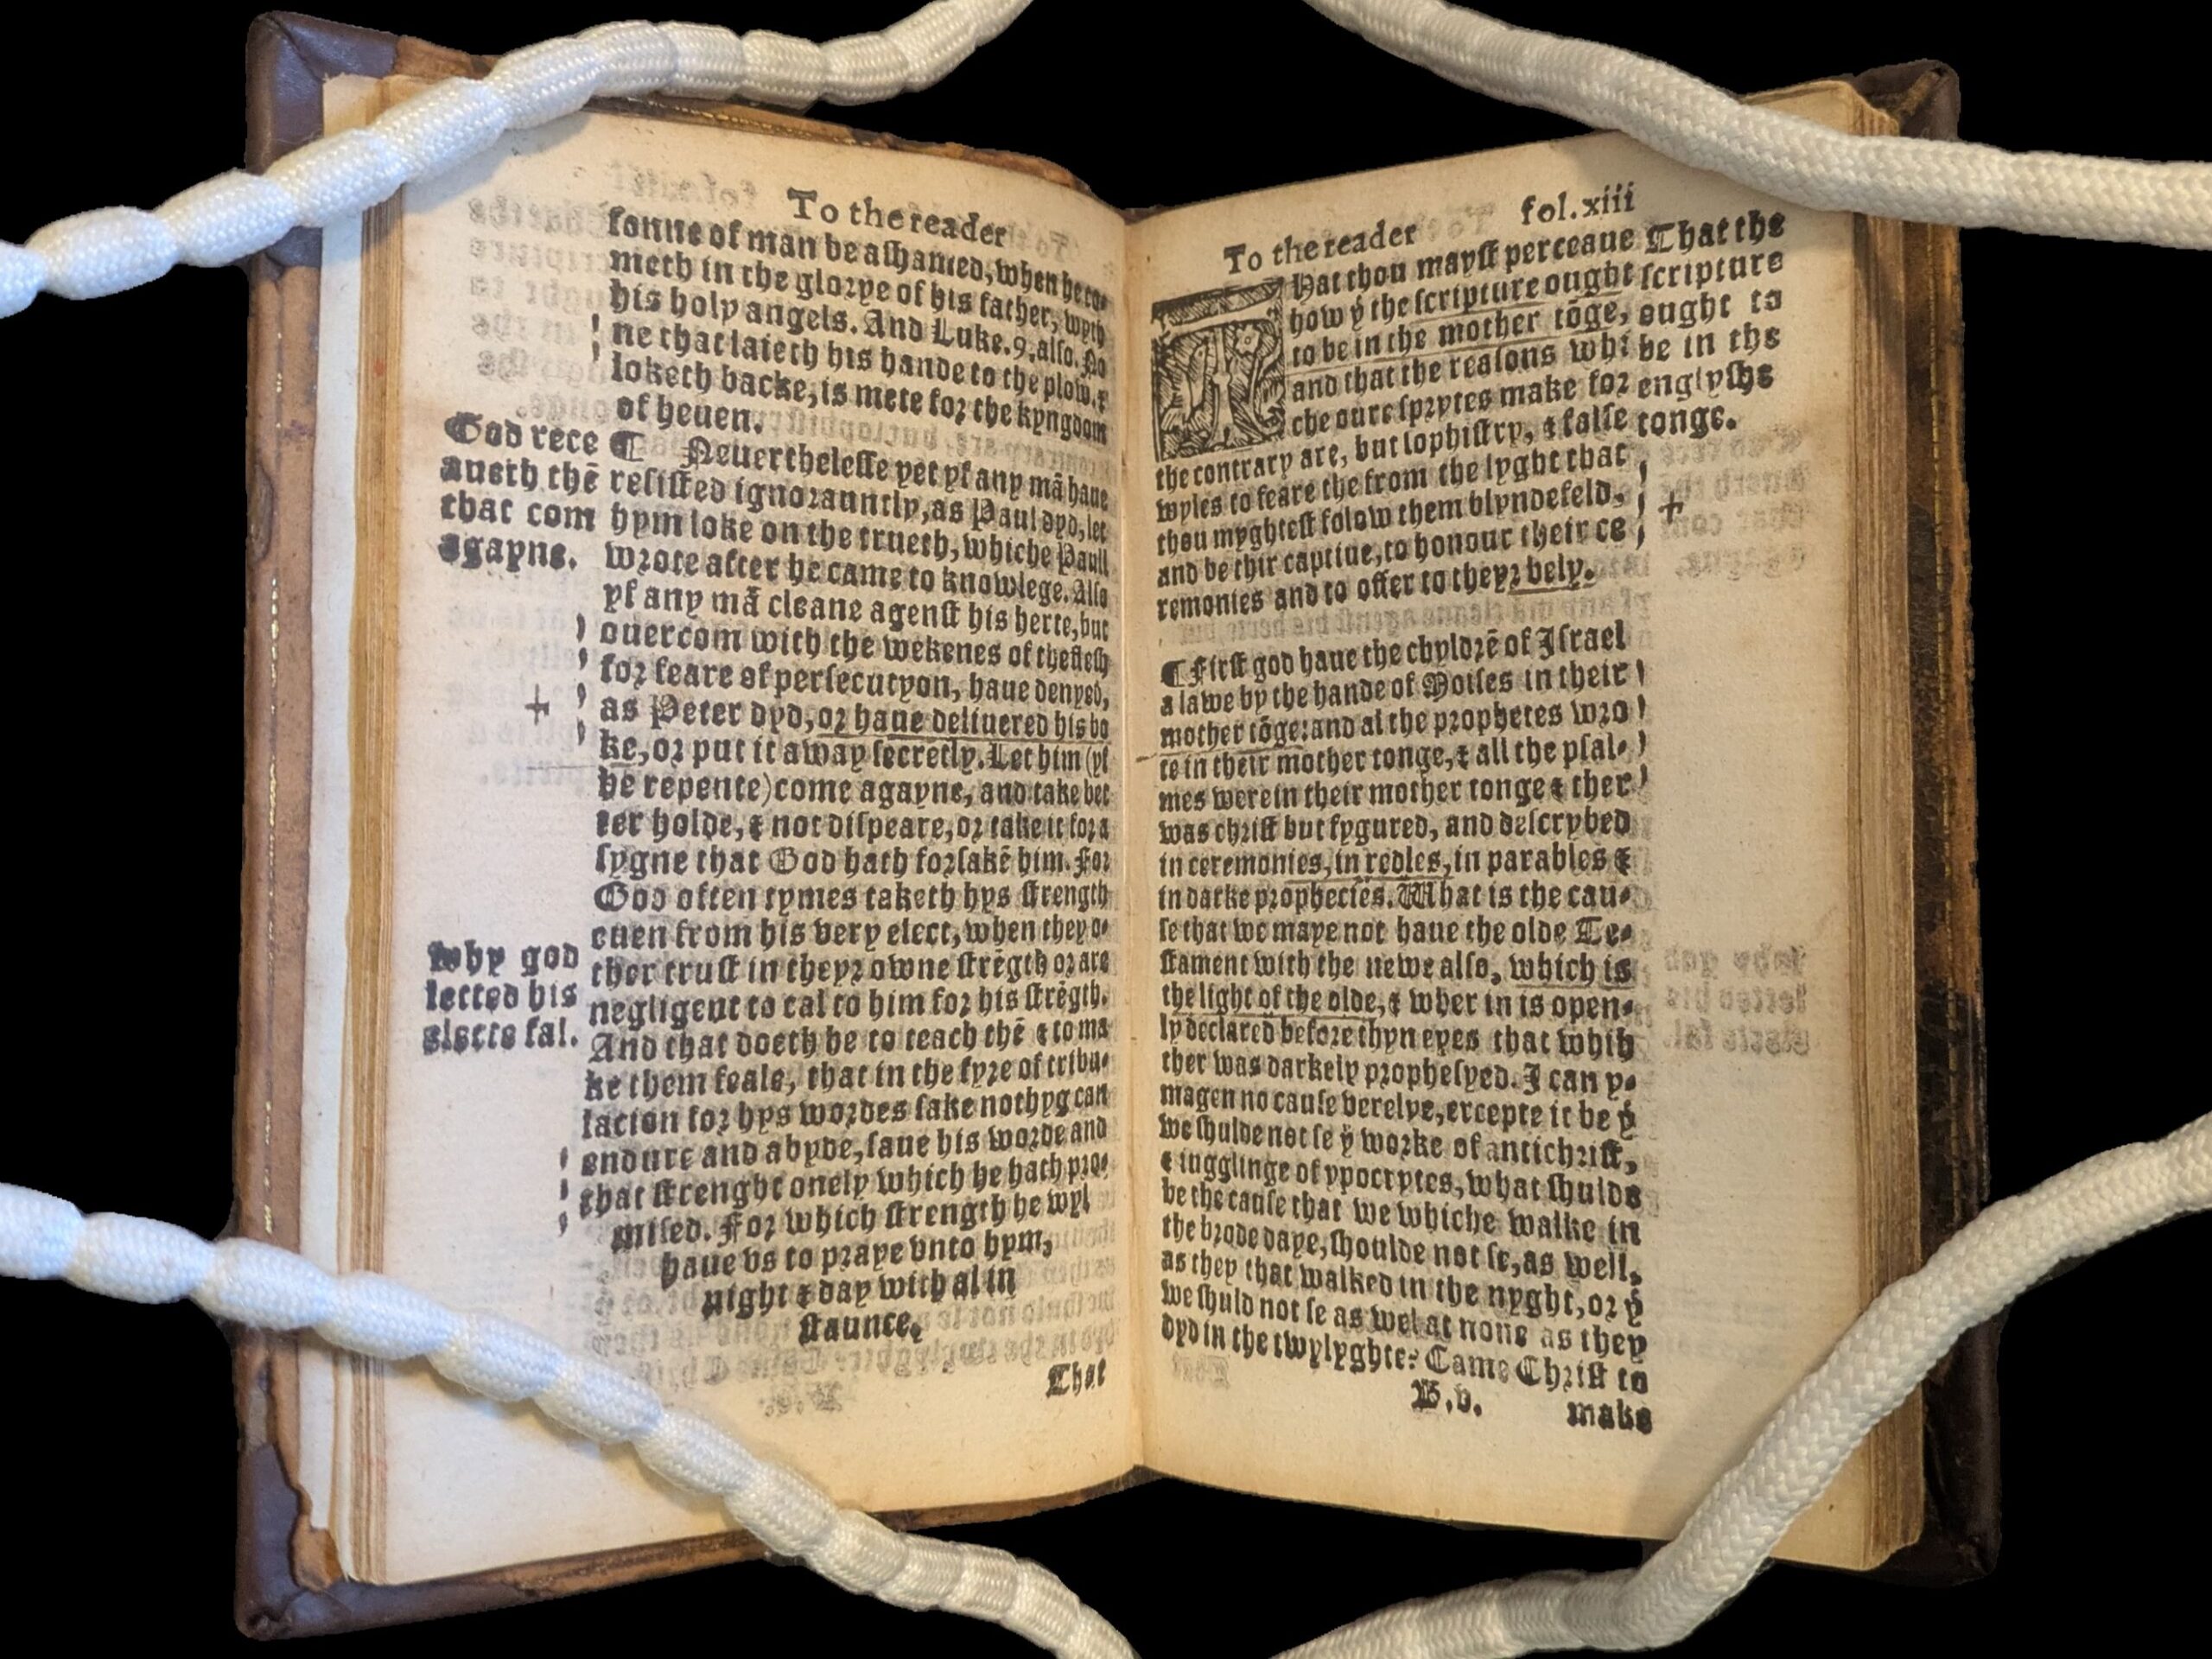 To the reader
sonne of man be ashamed, when he co-
meth in the glorye of his father, wyth
his holy angels. And Luke. 9. also. No
ne that laieth his hande to the plow, ⁊
loketh backe, is mete for the kyngdom
of heuen.
God rece
aueth thē
that com
agayne.
¶ Neuerthelesse yet yf any mā haue
resisted ignorauntly, as Paul dyd, let
hym loke on the trueth, whiche Paull
wrote after he came to knowlege. Also
yf any mā cleane agenst his herte, but
ouercom with the wekenes of the flesh
for feare of persecutyon, haue denyed,
as Peter dyd, or haue deliuered his bo
ke, or put it away secretly. Let him (yf
he repente) come agayne, and take bet
ter holde, ⁊ not dispeare, or take it for a
sygne that God hath forsakē him. For
God often tymes taketh hys strength
euen from his very elect, when they o-
ther trust in theyr owne strēgth or are
negligent to cal to him for his strēgth.
why god
letted his
electe fal.
And that doeth he to teach thē ⁊ to ma
ke them feale, that in the fyre of tribu-
lacion for hys wordes sake nothyg can
endure and abyde, saue his worde and
that strenght onely which he hath pro-
mised. For which strength he wyl
haue vs to praye vnto hym,
night ⁊ day with al in
staunce.
That
To the reader fol. xiii
That thou mayst perceaue
how ẏ the scripture ought
to be in the mother tōge,
and that the reasons whi
che oure sprytes make for
the contrary are, but sophistry, ⁊ false
wyles to feare the from the lyght that
thou myghtest folow them blyndefeld,
and be thir captiue, to honour their ce
remonies and to offer to theyr bely.
That the
scripture
ought to
be in the
englyshe
tonge.
¶ First god haue the chyldrē of Israel
a lawe by the hande of Moises in their
mother tōge: and al the prophetes wro
te in their mother tonge, ⁊ all the psal-
mes were in their mother tonge ⁊ ther
was christ but fygured, and descrybed
in ceremonies, in redles, in parables ⁊
in darke prophecies. What is the cau-
se that we maye not haue the olde Te-
stament with the newe also, which is
the light of the olde, ⁊ wher in is open-
ly declared before thyn eyes that whih
ther was darkely prophesyed. I can y-
magen no cause verelye, excepte it be ẏ
we shulde not se ẏ worke of antichrist,
⁊ iugglinge of ypocrytes, what shulde
be the cause that we whiche walke in
the brode daye, shoulde not se, as well,
as they that walked in the nyght, or ẏ
we shuld not se as wel at none as they
dyd in the twylyghte? Came Christ to
B.v. make